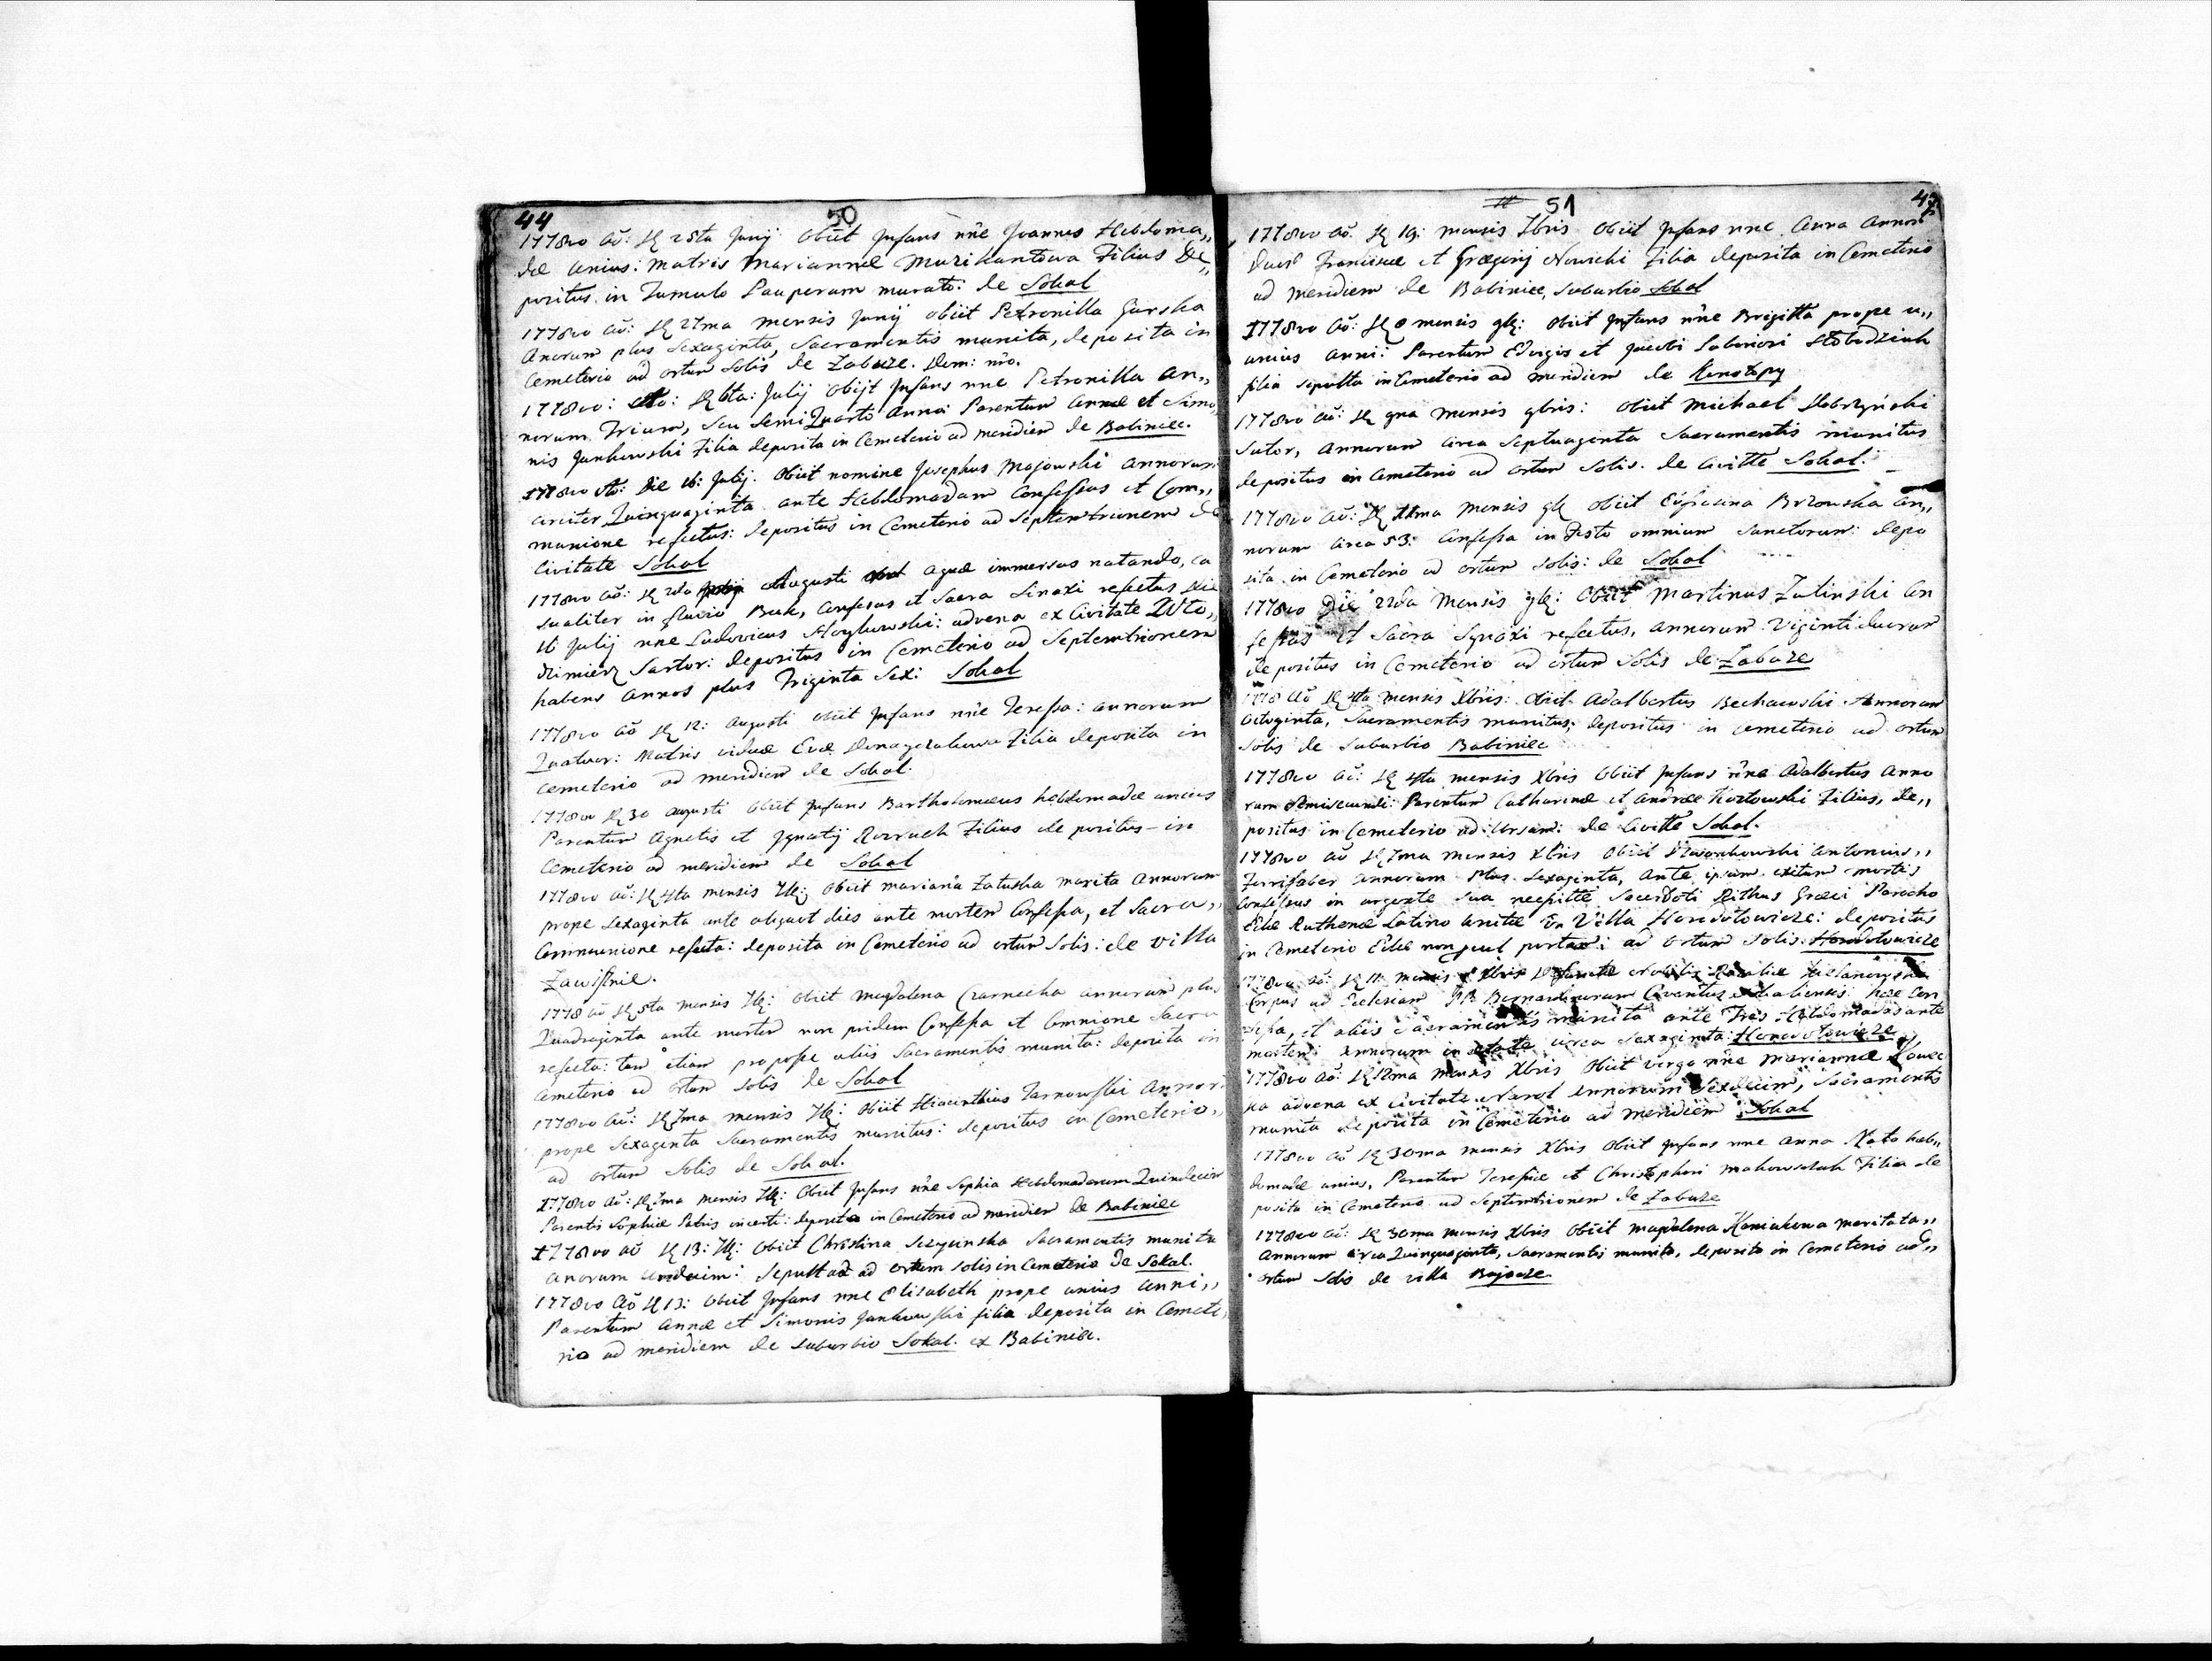 44 50
1778vo Aō: d 25ta Junij Obiit Infans nñe Joannes Hebdoma,,
dæ unius: Matris Mariannæ Muzikantowa Filius De,,
positus in Tumulo Pauperum murato: de Sokal
1778vo Aō: d 27ma mensis Junij obiit Petronilla Gurska
Anorum plus Sexaginta, Sacramentis munita, deposita in
Cemeterio ad ortum Solis de Zabuze.
1778vo: d 6ta: Julij Obijt Infans nne Petronilla an,,
norum Trium, seu Semi Quarti Anni Parentum Annæ et Simo,
nis Jankowski Filia deposita in Cemeterio ad meridiem de Babiniec.
1778vo Die 16: Julij: Obiit nomine Josephus Majowski annorum
circiter Quinquaginta ante Hebdomadam Confessus et Com,,
munione refectus: depositus in Cemeterio ad Septentrionem de
Civitate Sokal
1778vo aō: d 2da Augusti aquæ immersus natando, ca
sualiter in fluvio Buk, Confessus et Sacra Sinaxi refectus die
16 Julij nne Ludovicus advena ex Civitate
Sartor: depositus in Cemeterio ad Septemtrionem
habens annos plus Triginta Sex: Sokal
1778vo aō d 12: augusti obiit Infans nñe Teressa: annorum
Quatuor: Matris viduæ Evæ Filia deposita in
Cemeterio ad meridiem de Sokal.
1778vo d 30 augusti obiit Infans Bartholomæus hebdomadæ unius
Parentum Agnetis et Ignatij Filius depositus in
Cemeterio ad meridiem de Sokal
1778vo aō: d 4ta mensis 7b: Obiit mariaña Zatuska marita Annorum
prope Sexaginta ante aliquot dies ante mortem Confessa, et Sacra,,
Communione refecta: deposita in Cemeterio ad ortum Solis: de Villa
Zawissnie.
1778 aō d 5ta mensis 7b: Obiit Magdalena Czarnecka annorum plus
Quadraginta ante mortem non pridem Confessa et Comnione Sacra
refecta: tum etiam aliis Sacramentis munita: deposita in
Cemeterio ad ortum Solis de Sokal
1778vo aō: d 7ma mensis 7b: Obiit Hiacinthius Tarnowski Annor
prope Sexaginta Sacramentis munitus: depositus in Cemeterio,,
ad ortum Solis de Sokal.
1778vo aō: d 7ma mensis 7b: Obiit Infans nñe Sophia Hebdomadarum Quindecim
Parentis Sophiæ Patris incerti: deposita in Cemeterio ad meridiem de Babiniec
1778vo aō d 13: 7b: Obiit Christina Sacramentis munita
anorum undecim: Sepulta ad ortum Solis in Cemeterio de Sokal.
1778vo aō d 13: Obiit Infans nne Elisabeth prope unius anni,,
Parentum Annæ et Simonis Jankowski filia deposita in Cemete,
rio ad meridiem de Suburbio Sokal. ex Babiniec.
51
1778vo aō. d 19: mensis 7bris Obiit Infans nne Anna annor
duor Franciscæ et Græg Nowicki Filia deposita in Cemeterio
ad meridiem de Babiniec, Suburbio Sokal
1778vo Aō: d mensis 9b: Obiit Infans nñe Brigitta prope u,,
unius anni: Parentum Edvigis et Jacobi
filia sepulta in Cemeterio ad meridiem de Konotopy
1778vo aō: d 9na mensis 9bris: Obiit Michael Dobrzyński
Sutor, annorum circa Septuaginta Sacramentis munitus
depositus in Cemeterio ad ortum Solis. de Civitte Sokal.
1778vo aō: d mensis 9b Obiit Eufrasina Brzowska an,,
norum circa 53: Confessa in Festo omnium Sanctorum: depo
sita in Cemeterio ad ortum Solis: de Sokal
1778vo Die 22da Mensis 9b: Obiit Martinus Zalinski Con
fessus et Sacra Synaxi refectus, annorum Viginti duorum
depositus in Cemeterio ad ortum Solis de Zabuze
1778 Aō d 4ta mensis Xbris: Obiit Adalbertus Bechawski Annorum
Octoginta, Sacramentis munitus, depositus in Cemeterio ad ortum
Solis de Suburbio Babiniec
1778vo aō: d 4ta mensis Xbris Obiit Infans nñe Adalbertus Anno
rum Semisecundi: Parentum Catharinæ et Andreæ Kozłowski Filius, de,,
positus in Cemeterio ad: de Civitte Sokal.
1778vo aō d 7ma mensis Xbris Obiit Antonius,,
Ferrifaber annorum Plus Sexaginta, Ante ipsum exitum mortis
Confessus in urgente sua necessitte Sacerdoti Rithus Græci Parocho
Eccl Ruthenæ Latino unitæ in Villa Horodlowicze: depositus
in Cemeterio Eccl non procul portam: ad ortum Solis. Horodlowicze
1778vo aō: d 11 mensis Xbris
Corpus ad Ecclesiam PP Bernardinorum Conventus Sokaliensis: hæc Con
fessa, et aliis Sacramentis munita ante Tres Hebdomadas ante
mortem: Annorum in ætate circa Sexaginta: Horodlowicze
1778vo aō: d 12ma mensis Xbris Obiit Virgo nñe Mariannæ
ka advena ex Civitate Narol Annorum Sexdecim, Sacramentis
munita deposita in Cemeterio ad meridiem Sokal
1778vo aō d 30ma mensis Xbris Obiit Infans nne Anna Nata heb,,
domadæ unius, Parentum Teressiæ et Christophori Filia de
posita in Cemeterio ad Septemtrionem de Zabuze
1778vo aō: d 30ma mensis Xbris Obiit Magdalena Koniukowa maritata,,
Annorum circa Quinquaginta, Sacramentis munita, deposita in Cemeterio ad,,
ortum Solis de villa Bojanie.